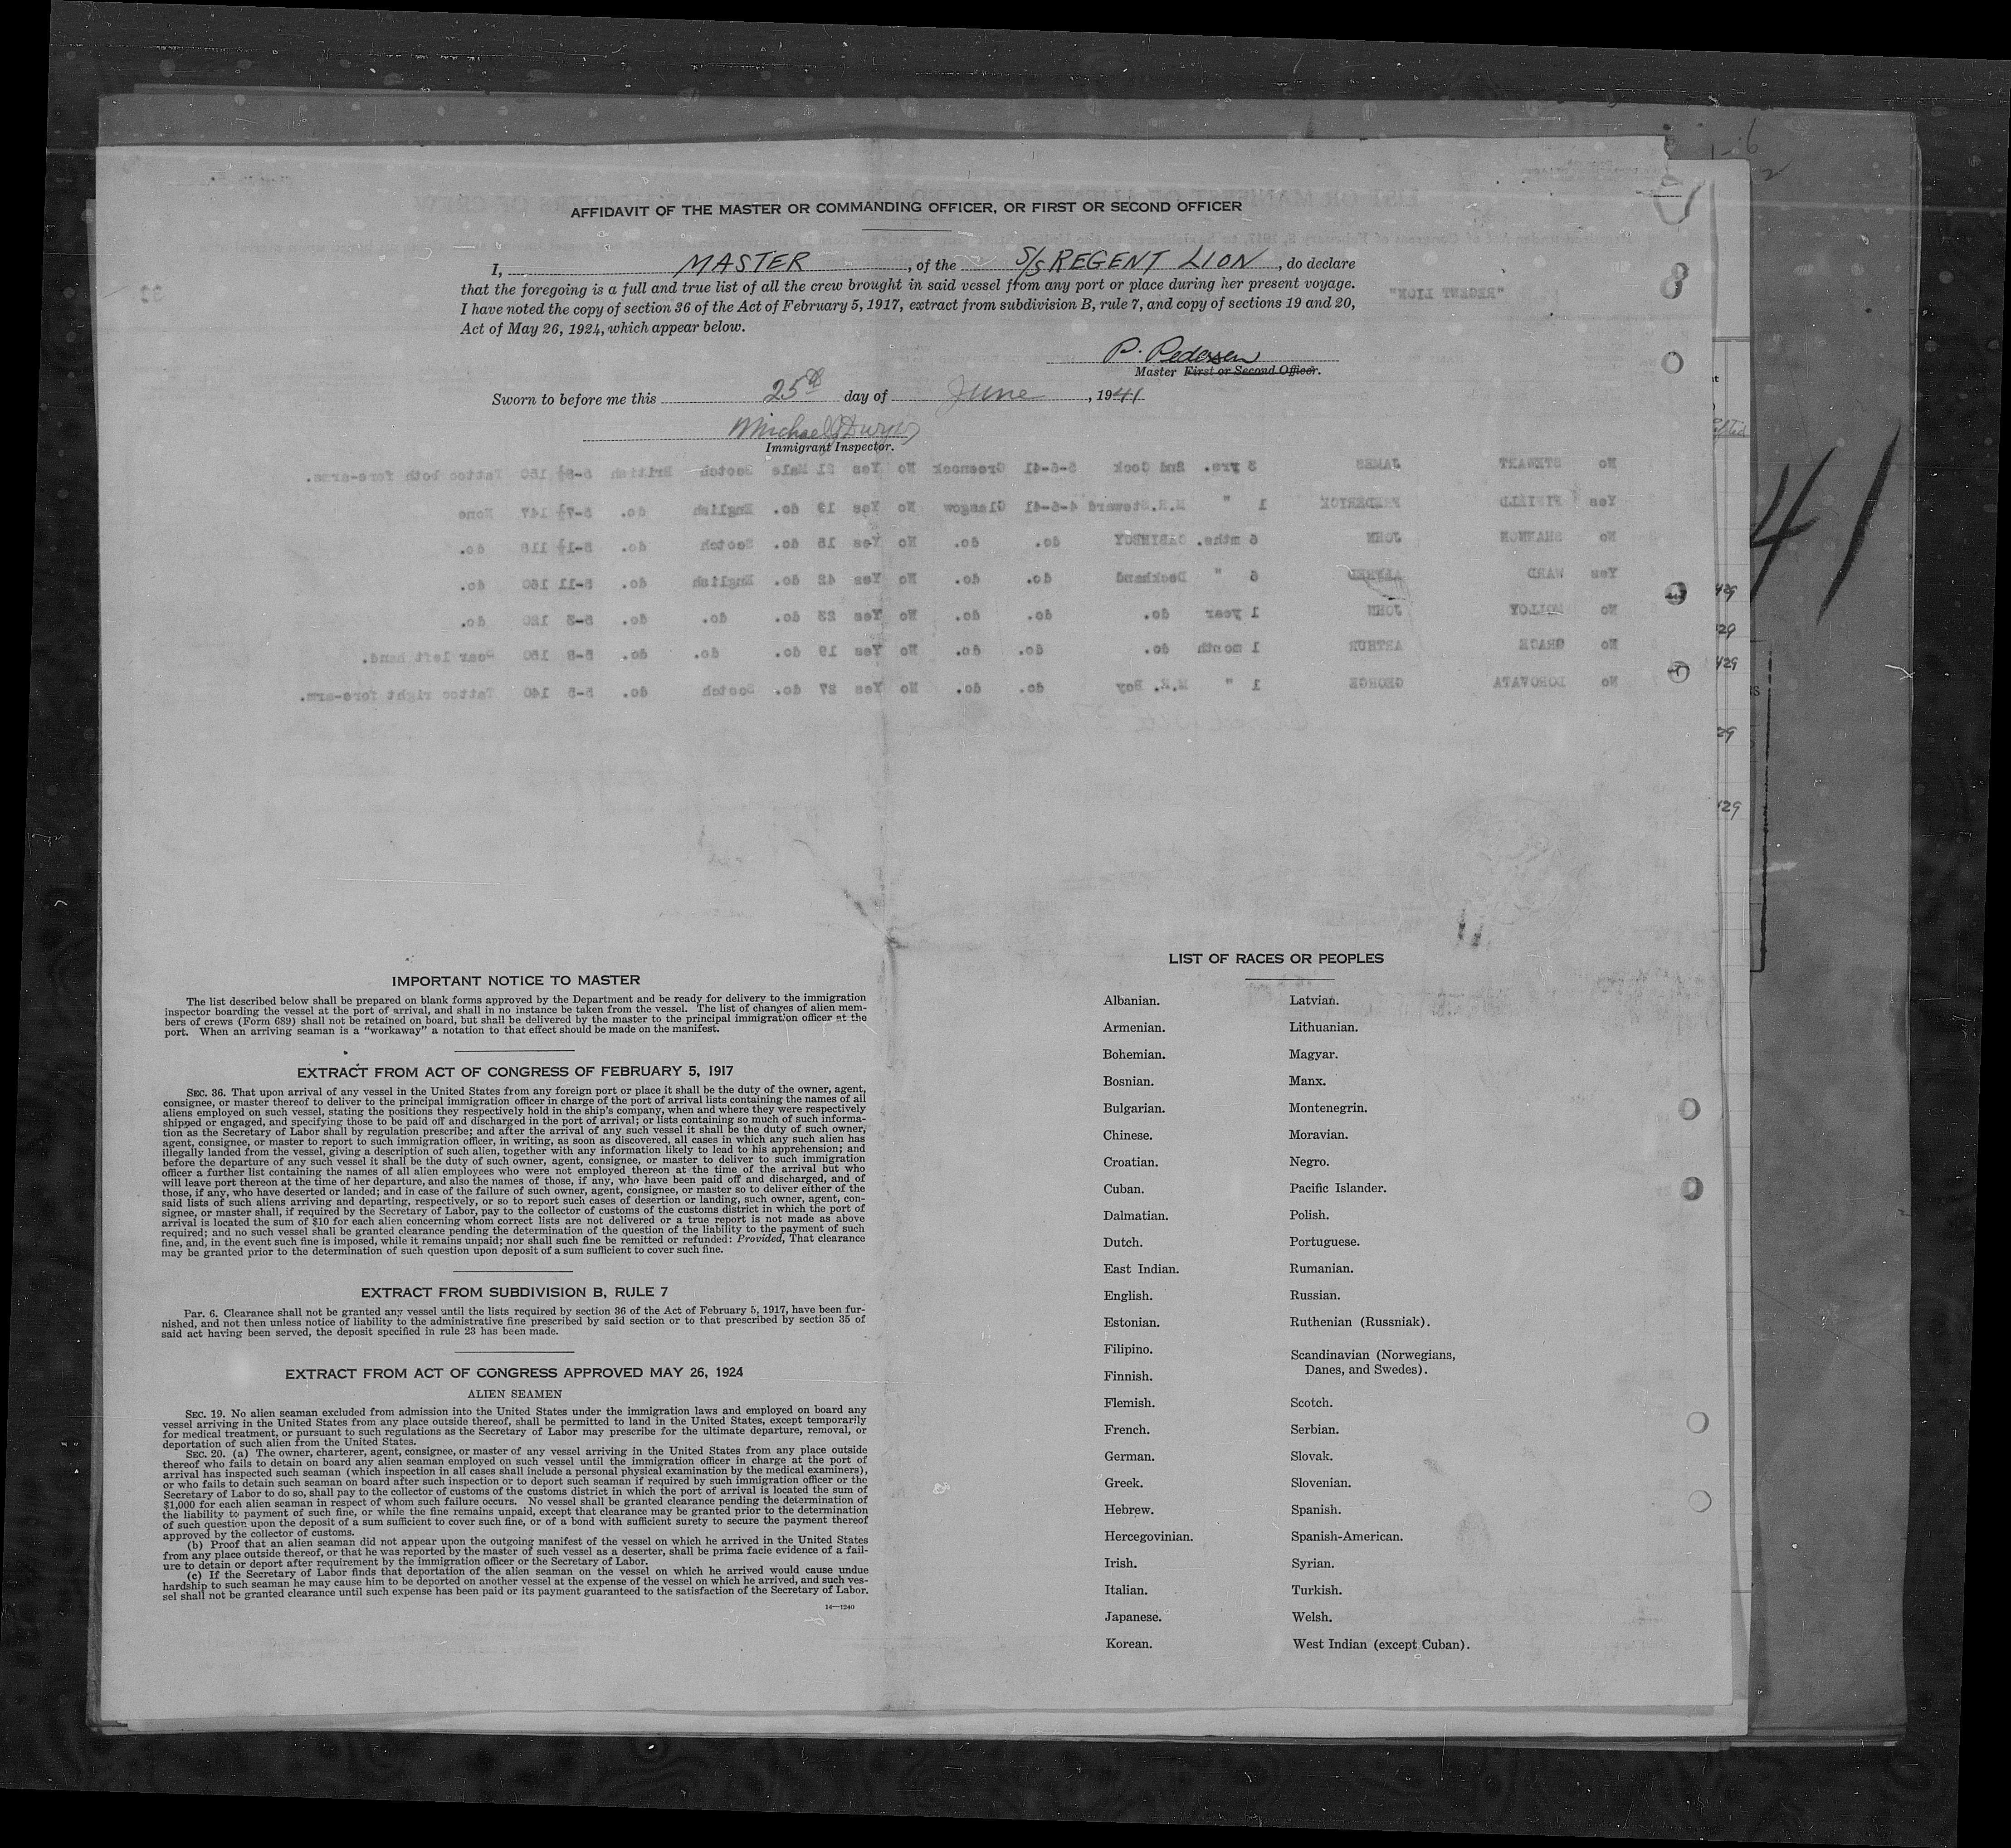 AFFIDAVIT OF THE MASTER OR COMMANDING OFFICER, OR FIRST OR SECOND OFFICER
I, MASTER, of the S/S REGENT LION, do declare
that the foregoing is a full and true list of all the crew brought in said vessel from any port or place during her present voyage.
I have noted the copy of section 36 of the Act of February 5, 1917, extract from subdivision B, rule 7, and copy of sections 19 and 20,
Act of May 26, 1924, which appear below.
P. Pedersen
Master First or Second Officer.
Sworn to before me this 25th day of June, 1941
Michael
Immigrant Inspector.
"REGENT LION"
No STEWART JAMES 3 yrs. 2nd Cook 5-6-41 Greenock No Yes 21 Male Scotch British 5-9½ 150 Tattoo both fore-arms.
Yes FREDERICK 1 " M.R.Steward 4-6-41 Glasgow No Yes 19 do. English do. 5-7½ 147 None
No SHANNON JOHN 6 mths. CABINBOY do. do. No Yes 16 do. Scotch do. 5-1½ 118 do.
Yes WARD ALFRED 6 " Deckhand do. do. No Yes 42 do. English do. 5-11 160 do.
No MOLLOY JOHN 1 year do. do. do. No Yes 23 do. do. do. 5-3 120 do.
No GRACE ARTHUR 1 month do. do. do. No Yes 19 do. do. do. 5-8 150 Scar left hand.
No GEORGE 1 " M.R. Boy do. do. No Yes 27 do. Scotch do. 5-5 140 Tattoo right fore-arm.
41
IMPORTANT NOTICE TO MASTER
The list described below shall be prepared on blank forms approved by the Department and be ready for delivery to the immigration
inspector boarding the vessel at the port of arrival, and shall in no instance be taken from the vessel. The list of changes of alien mem-
bers of crews (Form 689) shall not be retained on board, but shall be delivered by the master to the principal immigration officer at the
port. When an arriving seaman is a "workaway" a notation to that effect should be made on the manifest.
EXTRACT FROM ACT OF CONGRESS OF FEBRUARY 5, 1917
SEC. 36. That upon arrival of any vessel in the United States from any foreign port or place it shall be the duty of the owner, agent,
consignee, or master thereof to deliver to the principal immigration officer in charge of the port of arrival lists containing the names of all
aliens employed on such vessel, stating the positions they respectively hold in the ship's company, when and where they were respectively
shipped or engaged, and specifying those to be paid off and discharged in the port of arrival; or lists containing so much of such informa-
tion as the Secretary of Labor shall by regulation prescribe; and after the arrival of any such vessel it shall be the duty of such owner,
agent, consignee, or master to report to such immigration officer, in writing, as soon as discovered, all cases in which any such alien has
illegally landed from the vessel, giving a description of such alien, together with any information likely to lead to his apprehension; and
before the departure of any such vessel it shall be the duty of such owner, agent, consignee, or master to deliver to such immigration
officer a further list containing the names of all alien employees who were not employed thereon at the time of the arrival but who
will leave port thereon at the time of her departure, and also the names of those, if any, who have been paid off and discharged, and of
those, if any, who have deserted or landed; and in case of the failure of such owner, agent, consignee, or master so to deliver either of the
said lists of such aliens arriving and departing, respectively, or so to report such cases of desertion or landing, such owner, agent, con-
signee, or master shall, if required by the Secretary of Labor, pay to the collector of customs of the customs district in which the port of
arrival is located the sum of $10 for each alien concerning whom correct lists are not delivered or a true report is not made as above
required; and no such vessel shall be granted clearance pending the determination of the question of the liability to the payment of such
fine, and, in the event such fine is imposed, while it remains unpaid; nor shall such fine be remitted or refunded: Provided, That clearance
may be granted prior to the determination of such question upon deposit of a sum sufficient to cover such fine.
EXTRACT FROM SUBDIVISION B, RULE 7
Par. 6. Clearance shall not be granted any vessel until the lists required by section 36 of the Act of February 5, 1917, have been fur-
nished, and not then unless notice of liability to the administrative fine prescribed by said section or to that prescribed by section 35 of
said act having been served, the deposit specified in rule 23 has been made.
EXTRACT FROM ACT OF CONGRESS APPROVED MAY 26, 1924
ALIEN SEAMEN
SEC. 19. No alien seaman excluded from admission into the United States under the immigration laws and employed on board any
vessel arriving in the United States from any place outside thereof, shall be permitted to land in the United States, except temporarily
for medical treatment, or pursuant to such regulations as the Secretary of Labor may prescribe for the ultimate departure, removal, or
deportation of such alien from the United States.
SEC. 20. (a) The owner, charterer, agent, consignee, or master of any vessel arriving in the United States from any place outside
thereof who fails to detain on board any alien seaman employed on such vessel until the immigration officer in charge at the port of
arrival has inspected such seaman (which inspection in all cases shall include a personal physical examination by the medical examiners),
or who fails to detain such seaman on board after such inspection or to deport such seaman if required by such immigration officer or the
Secretary of Labor to do so, shall pay to the collector of customs of the customs district in which the port of arrival is located the sum of
$1,000 for each alien seaman in respect of whom such failure occurs. No vessel shall be granted clearance pending the determination of
the liability to payment of such fine, or while the fine remains unpaid, except that clearance may be granted prior to the determination
of such question upon the deposit of a sum sufficient to cover such fine, or of a bond with sufficient surety to secure the payment thereof
approved by the collector of customs.
(b) Proof that an alien seaman did not appear upon the outgoing manifest of the vessel on which he arrived in the United States
from any place outside thereof, or that he was reported by the master of such vessel as a deserter, shall be prima facie evidence of a fail-
ure to detain or deport after requirement by the immigration officer or the Secretary of Labor.
(c) If the Secretary of Labor finds that deportation of the alien seaman on the vessel on which he arrived would cause undue
hardship to such seaman he may cause him to be deported on another vessel at the expense of the vessel on which he arrived, and such ves-
sel shall not be granted clearance until such expense has been paid or its payment guaranteed to the satisfaction of the Secretary of Labor.
14—1240
LIST OF RACES OR PEOPLES
Albanian.
Armenian.
Bohemian.
Bosnian.
Bulgarian.
Chinese.
Croatian.
Cuban.
Dalmatian.
Dutch.
East Indian.
English.
Estonian.
Filipino.
Finnish.
Flemish.
French.
German.
Greek.
Hebrew.
Hercegovinian.
Irish.
Italian.
Japanese.
Korean.
Latvian.
Lithuanian.
Magyar.
Manx.
Montenegrin.
Moravian.
Negro.
Pacific Islander.
Polish.
Portuguese.
Rumanian.
Russian.
Ruthenian (Russniak).
Scandinavian (Norwegians,
Danes, and Swedes).
Scotch.
Serbian.
Slovak.
Slovenian.
Spanish.
Spanish-American.
Syrian.
Turkish.
Welsh.
West Indian (except Cuban).